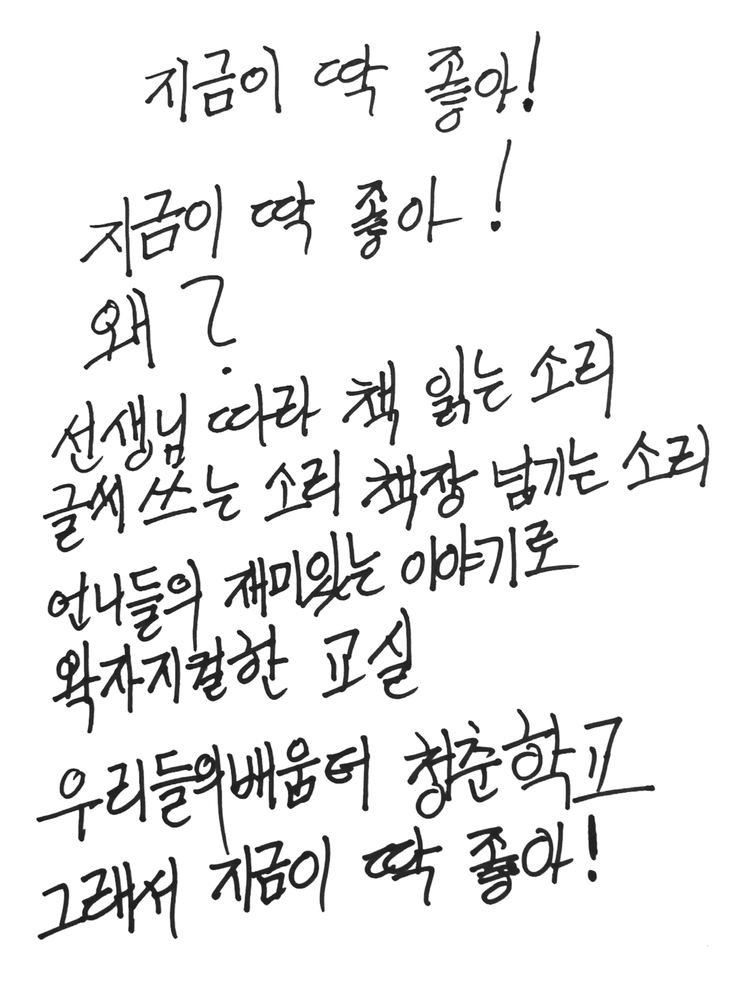 지금이 딱 좋아!
지금이 딱 좋아!
왜?
선생님 따라 책 읽는 소리
글씨 쓰는 소리 책장 넘기는 소리
언니들의 재미있는 이야기로
왁자지껄한 교실
우리들의 배움터 청춘학교
그래서 지금이 딱 좋아!